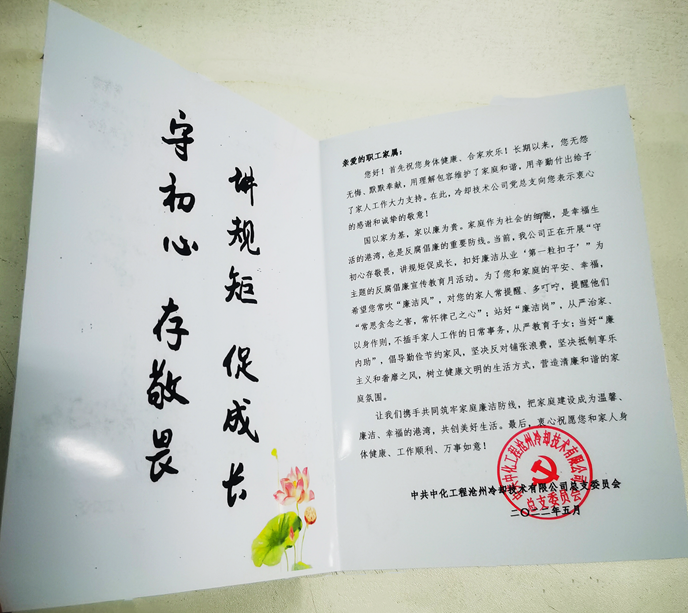 守初心 存敬畏
讲规矩 促成长
亲爱的职工家属：
您好！首先祝您身体健康、合家欢乐！长期以来，您无怨
无悔、默默奉献，用理解包容维护了家庭和谐，用辛勤付出给予
了家人工作大力支持。在此，冷却技术公司党总支向您表示衷心
的感谢和诚挚的敬意！
国以家为基，家以廉为贵。家庭作为社会的细胞，是幸福生
活的港湾，也是反腐倡廉的重要防线。当前，我公司正在开展“守
初心存敬畏，讲规矩促成长，扣好廉洁从业‘第一粒扣子’”为
主题的反腐倡廉宣传教育月活动。为了您和家庭的平安、幸福，
希望您常吹“廉洁风”，对您的家人常提醒、多叮咛，提醒他们
“常思贪念之害，常怀律己之心”；站好“廉洁岗”，从严治家、
以身作则，不插手家人工作的日常事务，从严教育子女；当好“廉
内助”，倡导勤俭节约家风，坚决反对铺张浪费，坚决抵制享乐
主义和奢靡之风，树立健康文明的生活方式，营造清廉和谐的家
庭氛围。
让我们携手共同筑牢家庭廉洁防线，把家庭建设成为温馨、
廉洁、幸福的港湾，共创美好生活。最后，衷心祝愿您和家人身
体健康、工作顺利、万事如意！
中共中化工程沧州冷却技术有限公司总支委员会
二〇二二年五月
中共中化工程沧州冷却技术有限公司
总支委员会